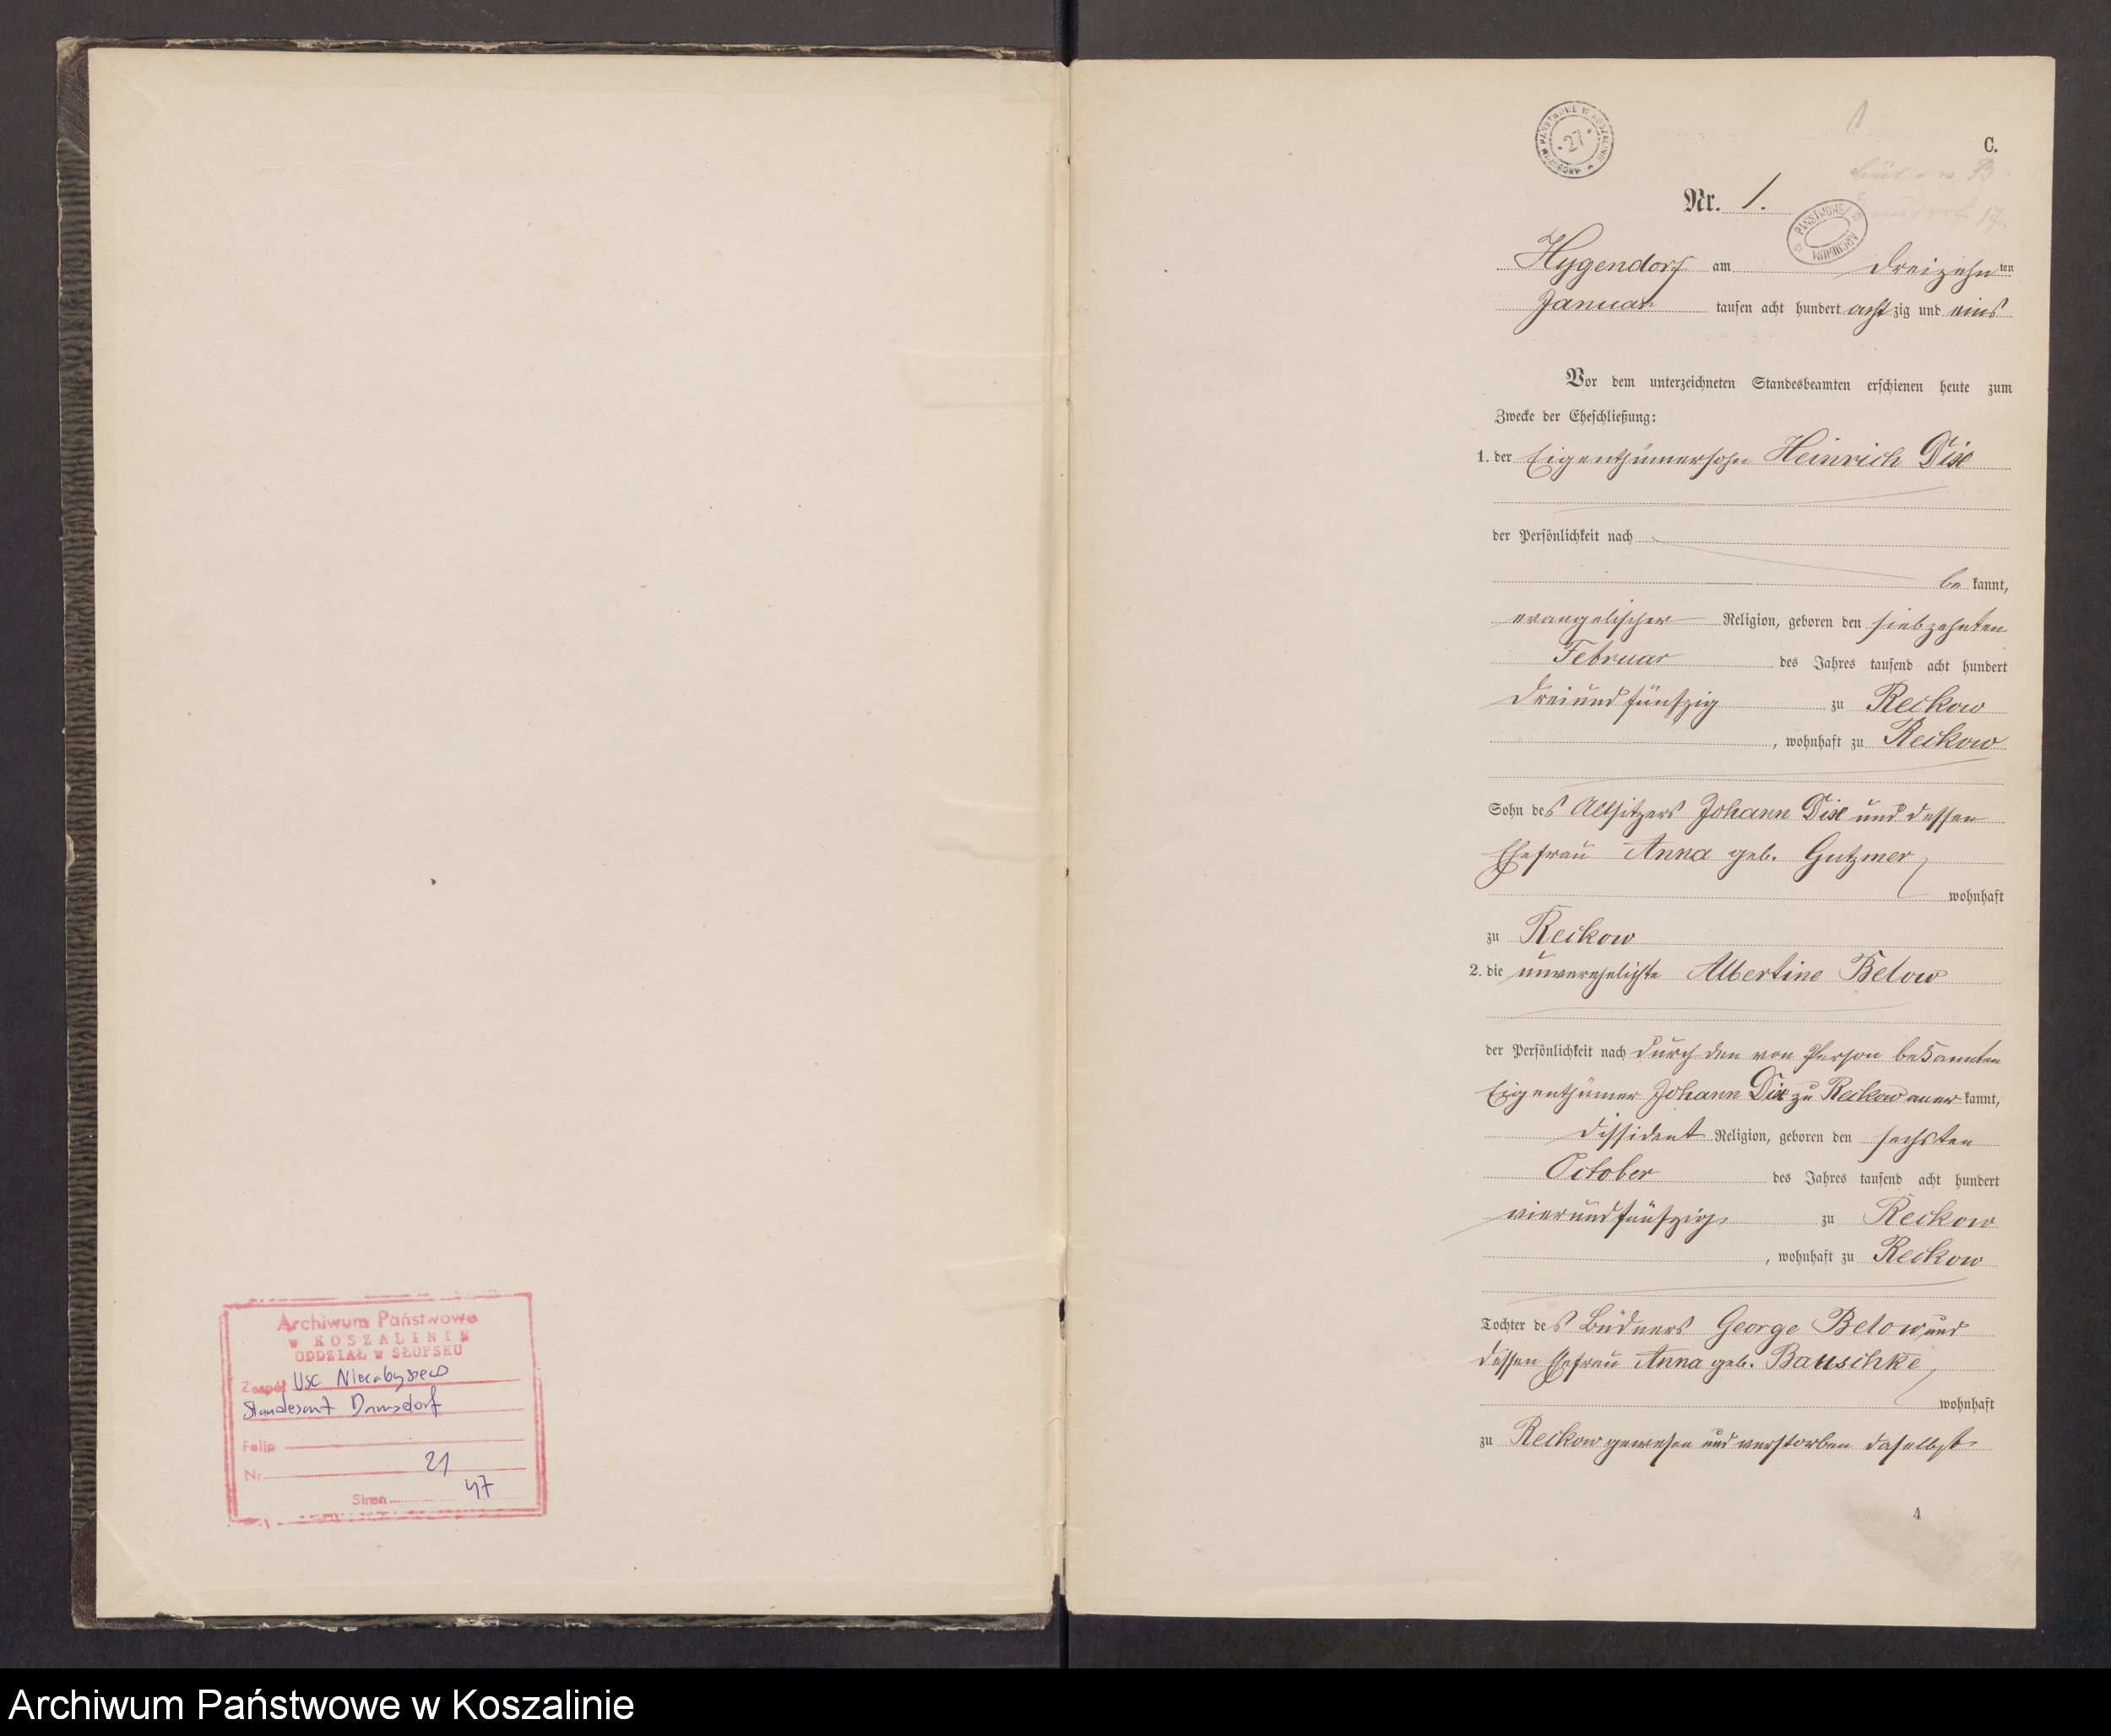 Archiwum Państwowe
w KOSZALINIE
ODDZIAŁ w SŁUPSKU
Zespół USC Niezabyszewo
Standesamt Damsdorf
Folio
Nr 21
Stron 47
ARCHIWUM PAŃSTWOWE W KOSZALINIE
27
1
C.
Bütow B
17
Nr. 1.
PAŃSTWOWE ARCHIWUM
Hygendorf am dreizehnten
Januar tausen acht hundert achtzig und eins
Vor dem unterzeichneten Standesbeamten erschienen heute zum
Zwecke der Eheschließung:
1. der Eigenthümersohn Heinrich Dix
der Persönlichkeit nach
be kannt,
evangelischer Religion, geboren den siebzehnten
Februar des Jahres tausend acht hundert
dreiundfünfzig zu Reckow
, wohnhaft zu Reckow
Sohn des Altsitzers Johann Dix und dessen
Ehefrau Anna geb. Gutzmer
wohnhaft
zu Reckow
2. die unverehelichte Albertine Below
der Persönlichkeit nach durch den von Person bekannten
Eigenthümer Johann Dix zu Reckow aner kannt,
dissident Religion, geboren den sechsten
October des Jahres tausend acht hundert
vierundfünfzig zu Reckow
, wohnhaft zu Reckow
Tochter des Büdners George Below und
dessen Ehefrau Anna geb. Bauschke,
wohnhaft
zu Reckow gewesen und verstorben daselbst
4
Archiwum Państwowe w Koszalinie